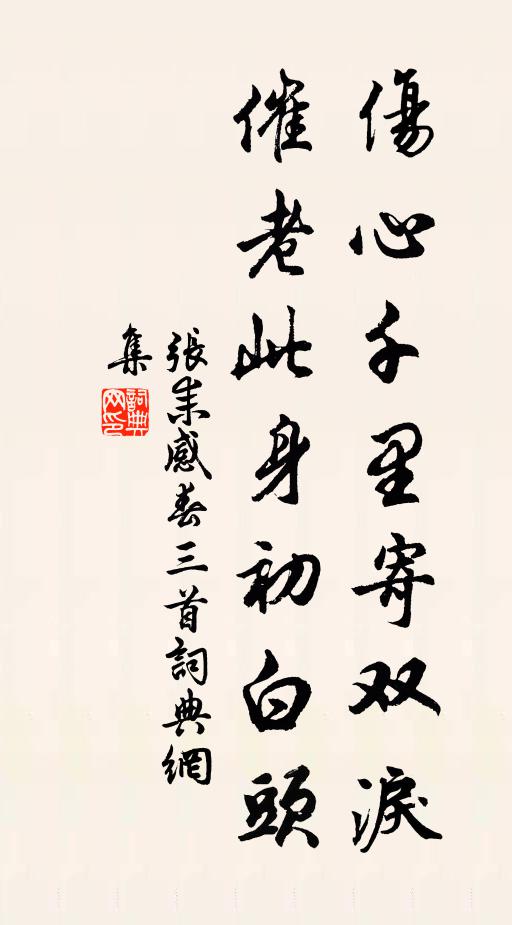 傷心千里寄双淚
催老此身初白頭
張耒感春三首詞典網
集
詞典
网印